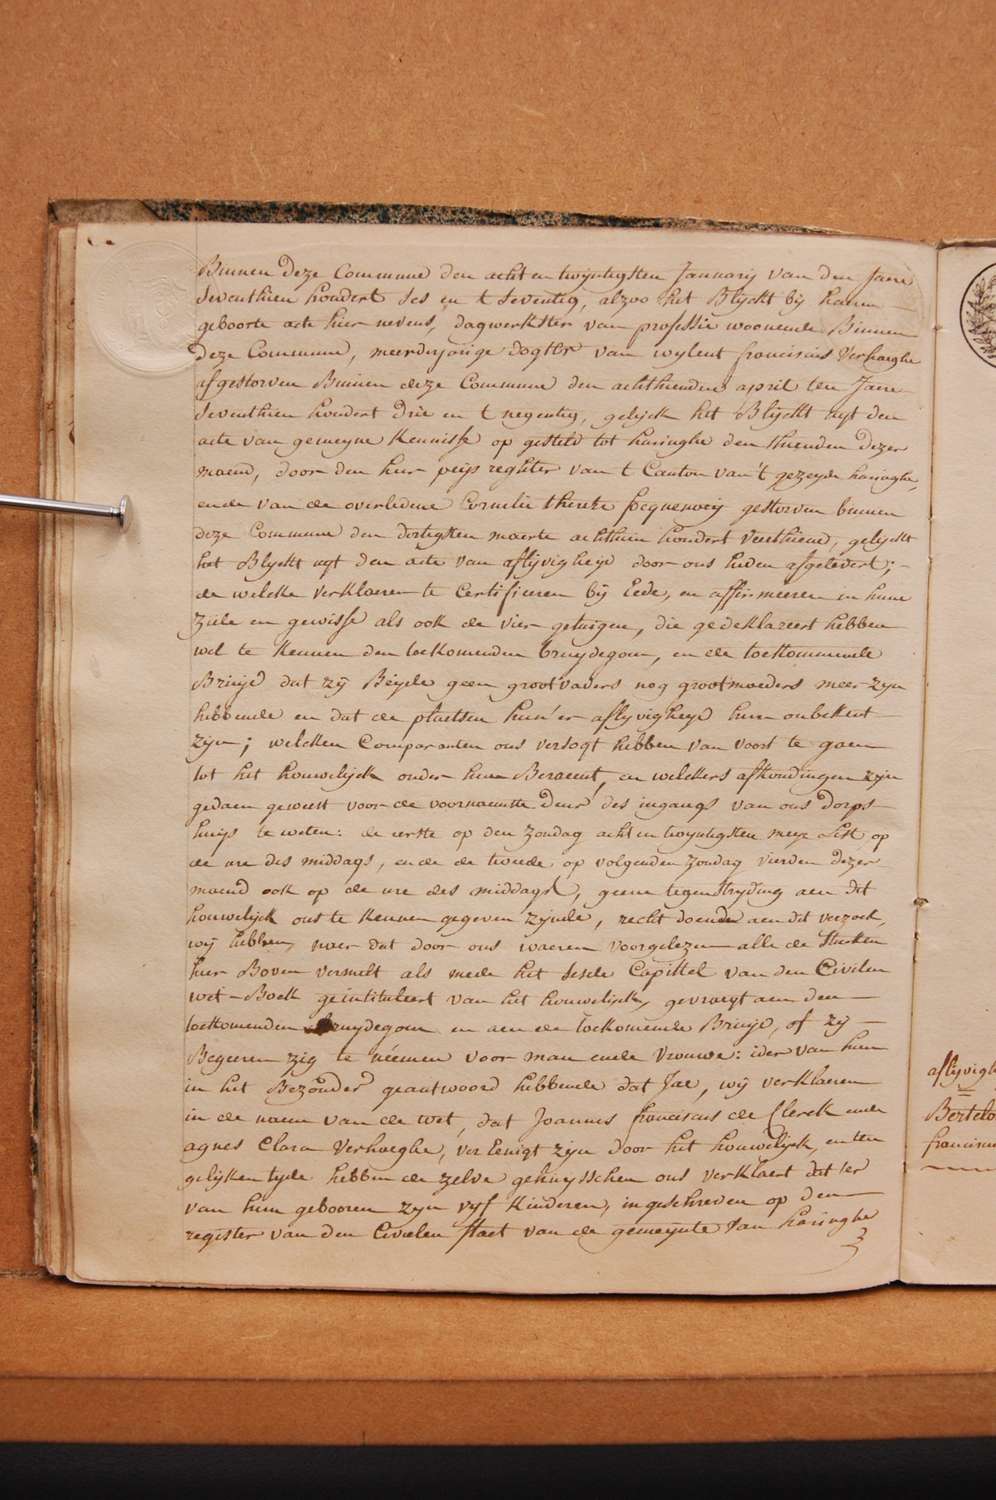 Binnen deze Commune den acht en twijntigsten Januarij van den Jaere
seventhien hondert ses en t seventig, alzoo het Blijckt bij haere
geboorte acte hier nevens, dagwerkster van professie woonende Binnen
deze Commune, meerderjarige dogter van wylent franciscus Verhaeghe
afgestorven Binnen deze Commune den achthienden april ten Jaere
seventhien hondert drie en t negentig, gelijck het Blijckt uyt den
acte van gemeyne Kennisse op gesteld tot haringhe den thienden dezer
maend, door den heer peijs regter van t Canton van 't gezeyde haringhe,
ende van de overledene Cornelie therese focquenoeij gestorven binnen
deze Commune den dertigsten maerte achthien hondert veerthiene, gelijckt
het Blijckt uyt den acte van aflijvigheyd door ons heden afgelevert;
de welcke verklaeren te Certificeren bij Eede, en affirmeeren in hune
ziele en gewisse als ook de vier getuigen, die gedeklareert hebben
wel te Kennen den toekomenden bruydegom, en de toekommende
Bruijd dat zij Beyde geen grootvaders nog grootmoeders meer zyn
hebbende en dat de plaetsen hun'er aflyvigheyd hun onbekent
zijn; welcken Comparanten ons versogt hebben van voort te gaen
tot het houwelijck onder hun Beraemt, en welckers afkondingen zijn
gedaen geweest voor de voornaemste deur des ingangs van ons dorps
huijs te weten: de eerste op den zondag acht en twyntigsten meije lest, op
de ure des middags, ende de tweede op volgenden zondag vierden dezer
maend ook op de ure des middags, geene tegenstryding aen dit
houwelijck ons te kennen gegeven zijnde, recht doende aen dit verzoek,
wij hebben, naer dat door ons waeren voorgelezen alle de stucken
hier Boven vermelt als mede het sesde Capittel van den Civilen
wet-Boek geintituleert van het houwelijck, gevraegt aen den
toekomenden bruydegom en aen de toekomende Bruijd, of zij
Begeeren zig te néemen voor man ende vrouwe: ider van hun
in het Bezonder geantwoord hebbende dat Jae, wij verklaeren
in de naem van de wet, dat Joannes franciscus de Clerck ende
agnes Clara Verhaeghe, vereenigt zijn door het houwelijck, en ten
gelijken tyde hebben de zelve gehuysschen ons verklaert dat 'er
van hun gebooren zyn vyf Kinderen, ingeschreven op den
register van den Civielen staet van de gemeynte van haringhe
aflyvigh
Bertelo
francisc